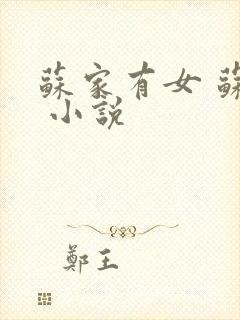 蘇家有女 蘇
小說
鄭王